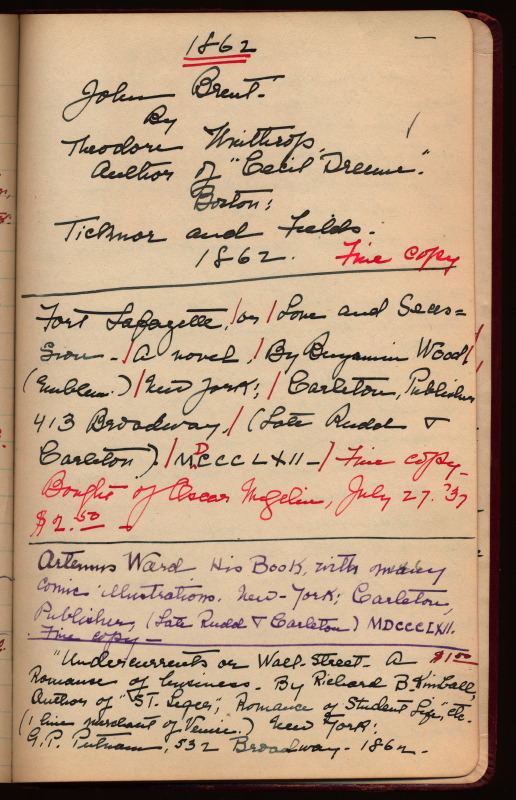 1862
John Brent.
By
Theodore Winthrop,
Author of "Cecil Dreeme."
Boston:
Ticknor and Fields.
1862. Fine copy
Fort Lafayette,/or/Love and Seces=
sion-/A novel,/By Benjamin Wood/
(Emblem.)/New York:/Carleton, Publisher
413 Broadway,/(Late Rudd &
Carleton)/MDCCCLXII-/Fine copy-
Bought of Oscar Wegelin, July 27. '37
$2.50
Artemus Ward His Book, with many
comic illustrations. New-York: Carleton,
Publisher, (Late Rudd & Carleton) MDCCCLXII.
Fine copy-
"Undercurrents or Wall-Street- A $1.50
Romance of business. By Richard B. Kimball,
Author of "St. Leger", Romance of Student Life, etc.
(1 line merchant of Venice.) New York:
G.P. Putnam, 532 Broadway- 1862-